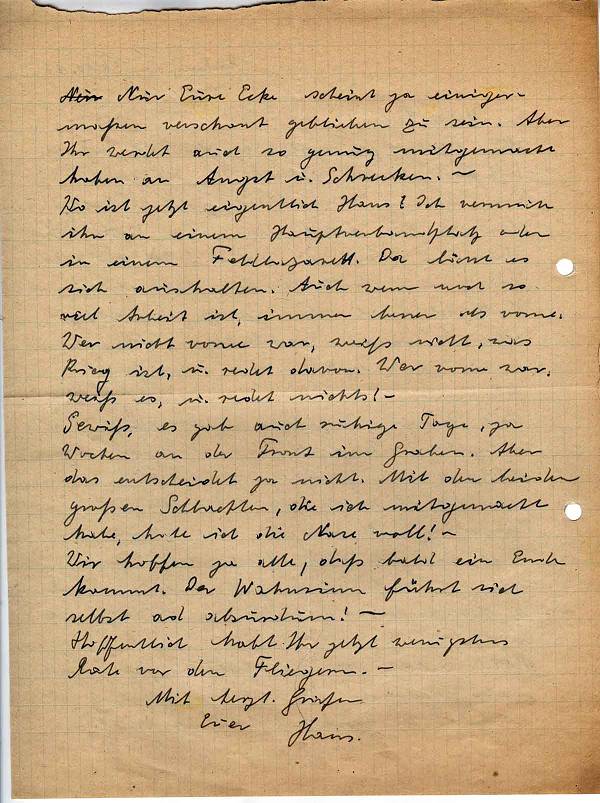 Nur Nur Eure Ecke scheint ja einiger-
maßen verschont geblieben zu sein. Aber
Ihr werdet auch so genug mitgemacht
haben an Angst u. Schrecken. –
Wo ist jetzt eigentlich Hans? Ich vermute
ihn an einem Hauptverbandplatz oder
in einem Feldlazarett. Da lässt es
sich aushalten. Auch wenn noch so
viel Arbeit ist, immer besser als vorne.
Wer nicht vorne war, weiß nicht, was
Krieg ist, u. redet davon. Wer vorne war,
weiß es, u. redet nichts! –
Gewiß, es gab auch ruhige Tage, ja
Wochen an der Front im Graben. Aber
das entscheidet ja nicht. Mit den beiden
großen Schlachten, die ich mitgemacht
habe, habe ich die Nase voll! –
Wir hoffen ja alle, daß bald ein Ende
kommt. Der Wahnsinn führt sich
selbst ad absurdum! –
Hoffentlich habt Ihr jetzt wenigstens
Ruhe vor den Fliegern. –
Mit herzl. Grüßen
Euer Hans.